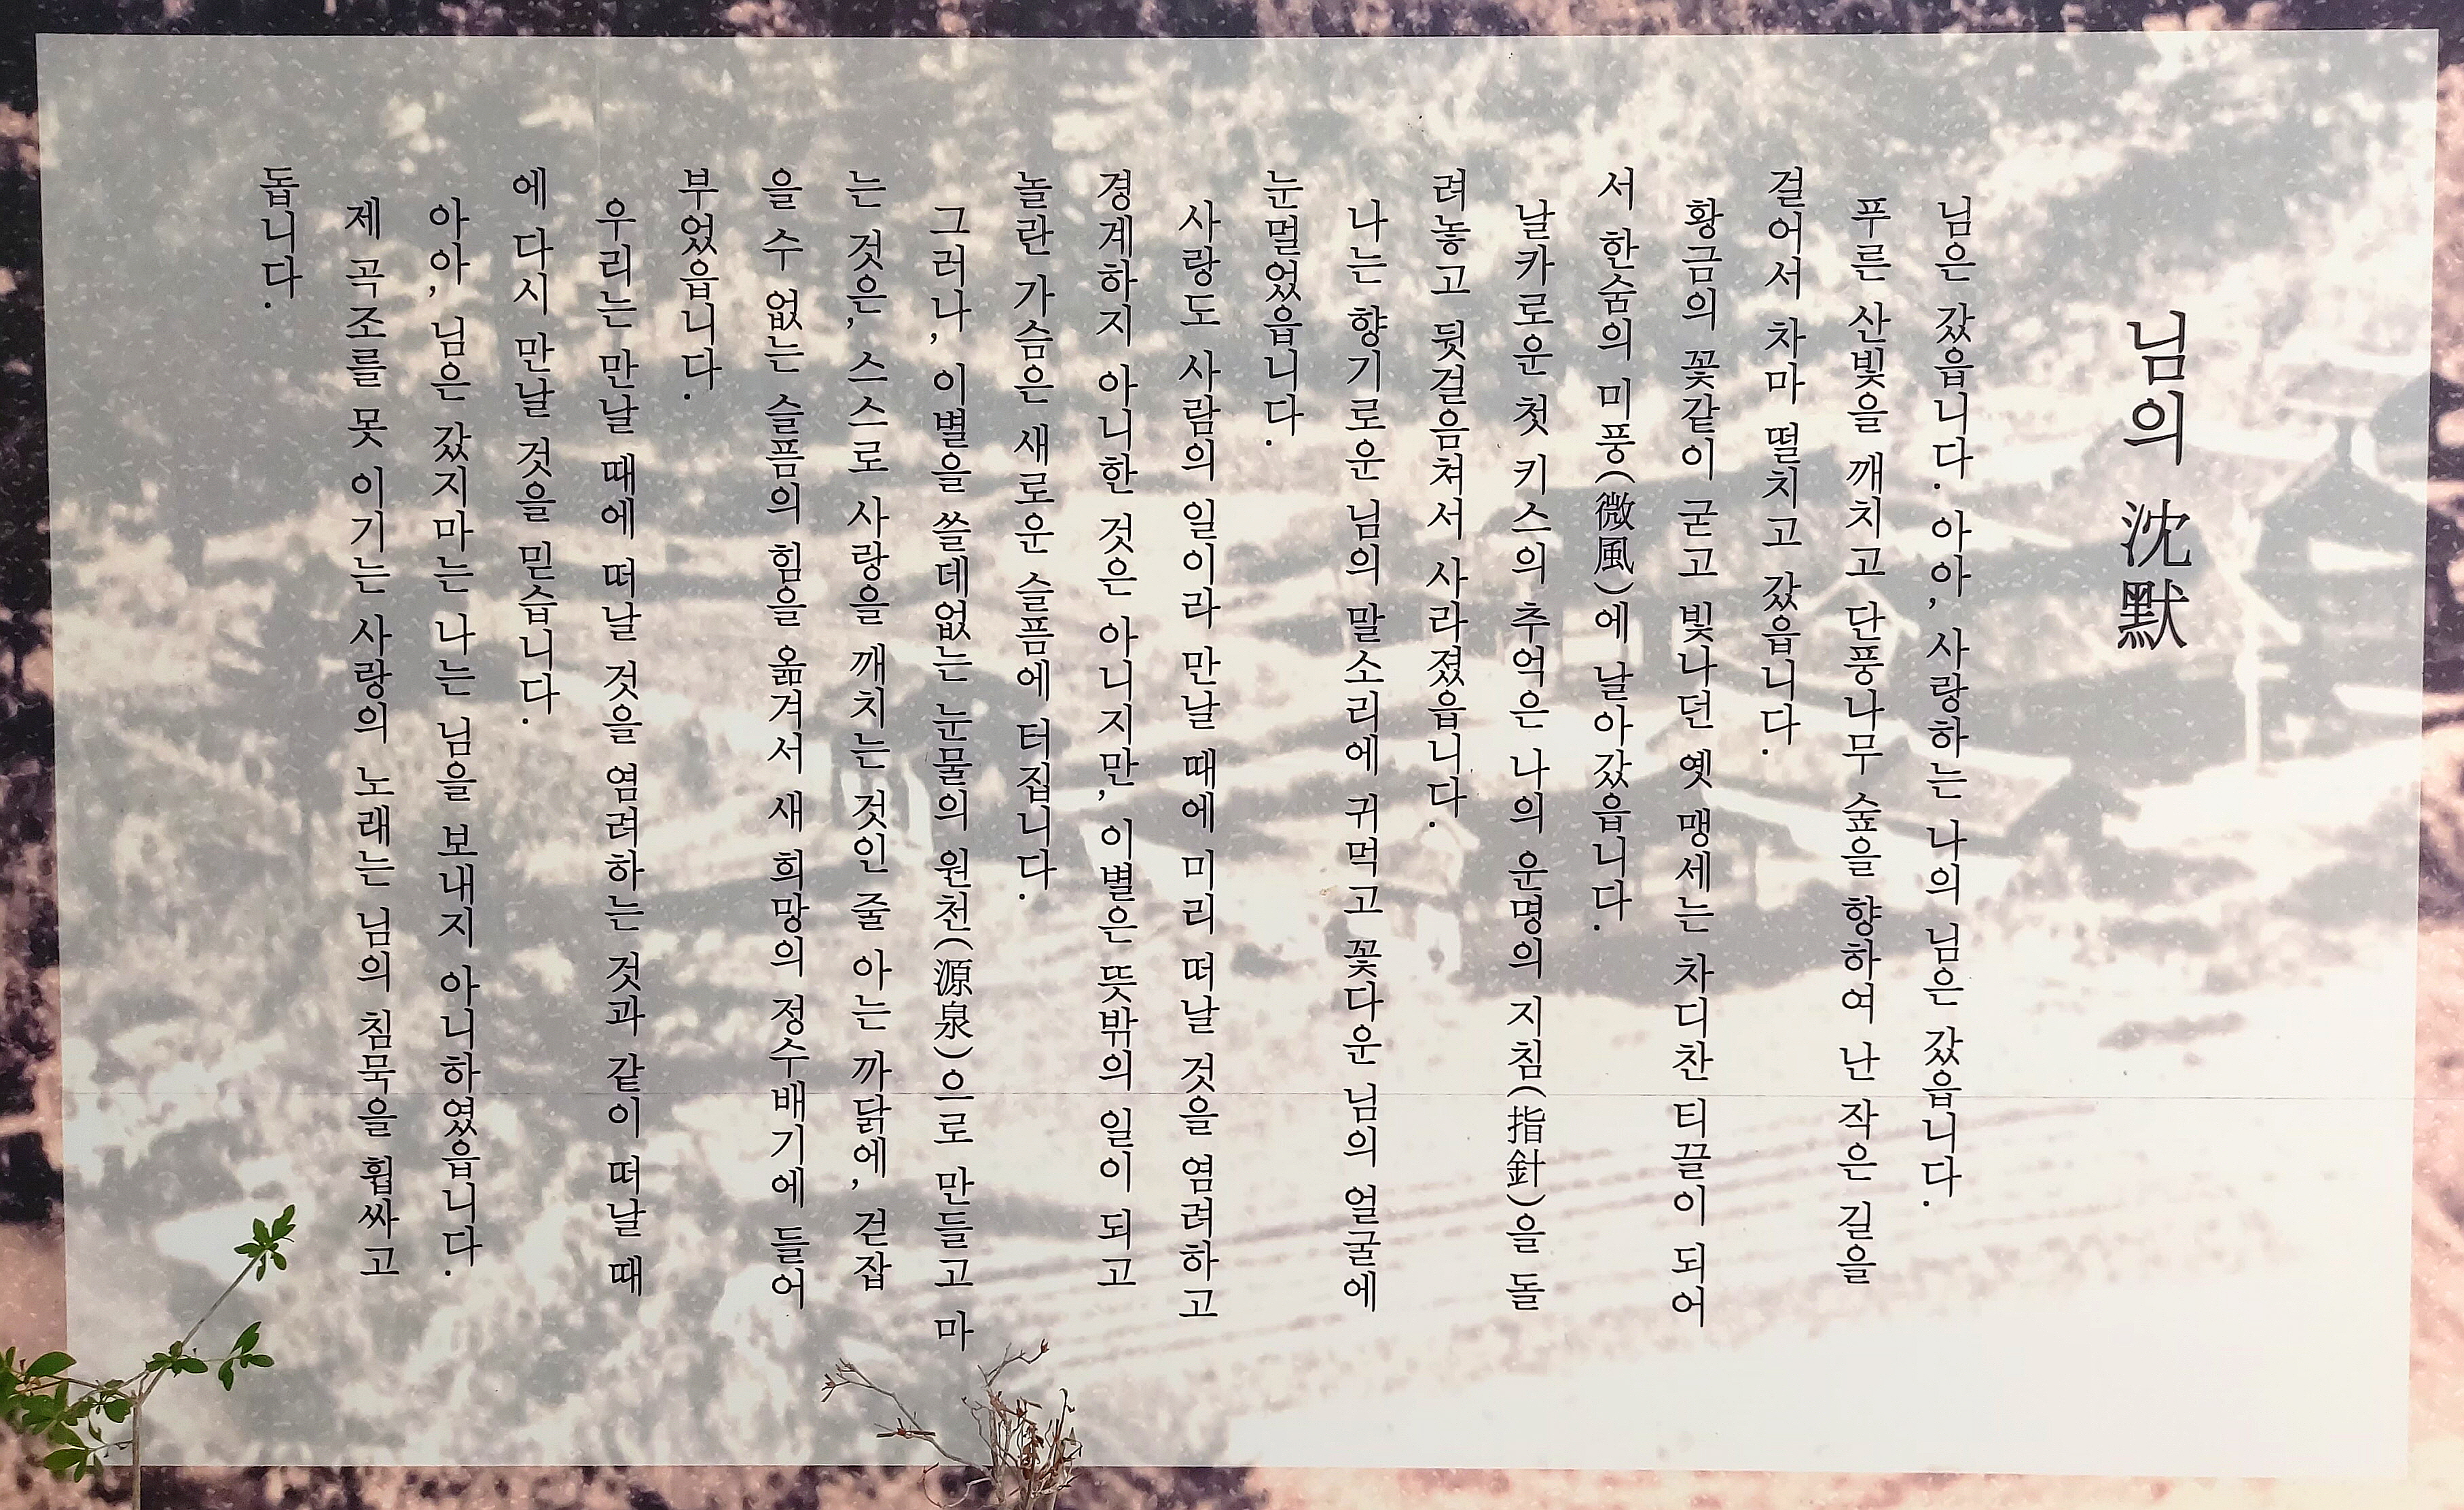 님의 沈默
님은 갔읍니다. 아아, 사랑하는 나의 님은 갔읍니다.
푸른 산빛을 깨치고 단풍나무 숲을 향하여 난 작은 길을
걸어서 차마 떨치고 갔읍니다.
황금의 꽃같이 굳고 빛나던 옛 맹세는 차디찬 티끌이 되어
서 한숨의 미풍(微風)에 날아갔읍니다.
날카로운 첫 키스의 추억은 나의 운명의 지침(指針)을 돌
려놓고 뒷걸음쳐서 사라졌읍니다.
나는 향기로운 님의 말소리에 귀먹고 꽃다운 님의 얼굴에
눈멀었읍니다.
사랑도 사람의 일이라 만날 때에 미리 떠날 것을 염려하고
경계하지 아니한 것은 아니지만, 이별은 뜻밖의 일이 되고
놀란 가슴은 새로운 슬픔에 터집니다.
그러나, 이별을 쓸데없는 눈물의 원천(源泉)으로 만들고 마
는 것은, 스스로 사랑을 깨치는 것인 줄 아는 까닭에, 걷잡
을 수 없는 슬픔의 힘을 옮겨서 새 희망의 정수배기에 들어
부었읍니다.
우리는 만날 때에 떠날 것을 염려하는 것과 같이 떠날 때
에 다시 만날 것을 믿습니다.
아아, 님은 갔지마는 나는 님을 보내지 아니하였읍니다.
제 곡조를 못 이기는 사랑의 노래는 님의 침묵을 휩싸고
돕니다.